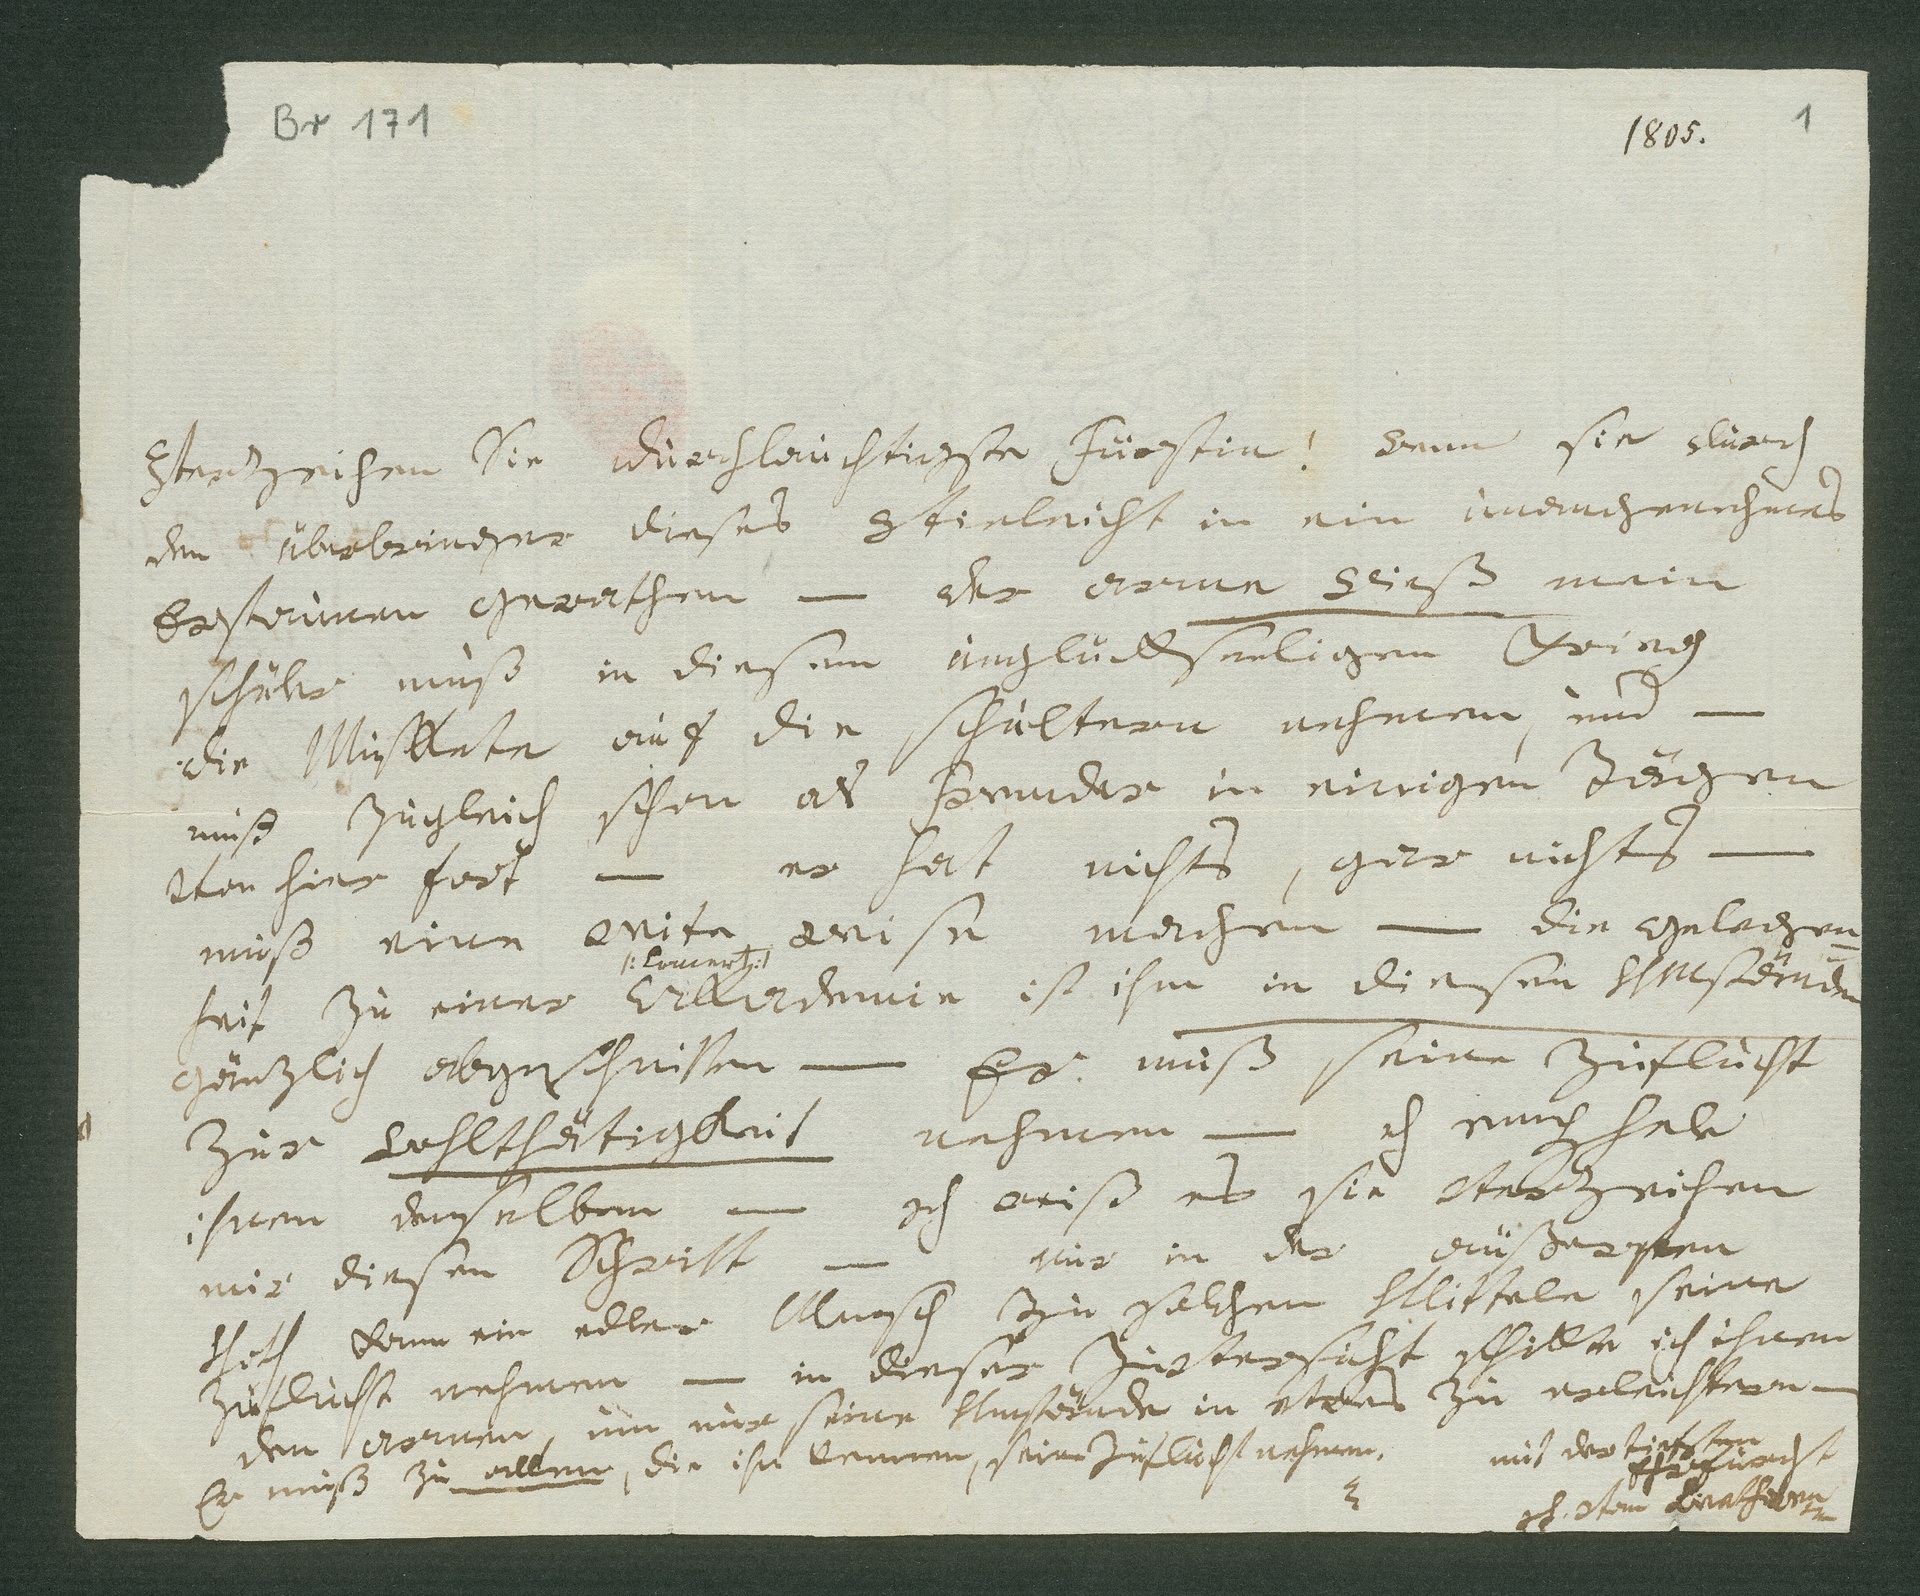 Br 171
1805.
1
Verzeihen Sie Durchlauchtigste Fürstin! wenn sie durch
den überbringer dieses Vieleicht in ein unangenehmes
Erstaunen gerathen — der arme Rieß mein
schüler muß in diesem unglückseeligen Krieg
die Muskete auf die schultern nehmen, und —
muß zugleich schon als Fremder in einigen Tägen
von hier fort — er hat nichts, gar nichts —
muß eine weite reise machen — die gelegen=
/: Concert :/
heit zu einer Akademie ist ihm in diesen Umständen
gänzlich abgeschnitten — Er muß seine Zuflucht
zur wohlthätigkeit nehmen — ich empfhele
ihnen denselben — ich weiß es sie verzeihen
mir diesen Schritt — nur in der äußersten
Noth kann ein edler Mensch zu solchen Mitteln seine
Zuflucht nehmen — in dieser Zuversicht schikke ich ihnen
den armen, um nur seine Umstände in etwas zu erleichtern —
Er muß zu allen, die ihn kennen, seine Zuflucht nehmen.
mit der tiefsten
Ehrfurcht
L. van Beethowen